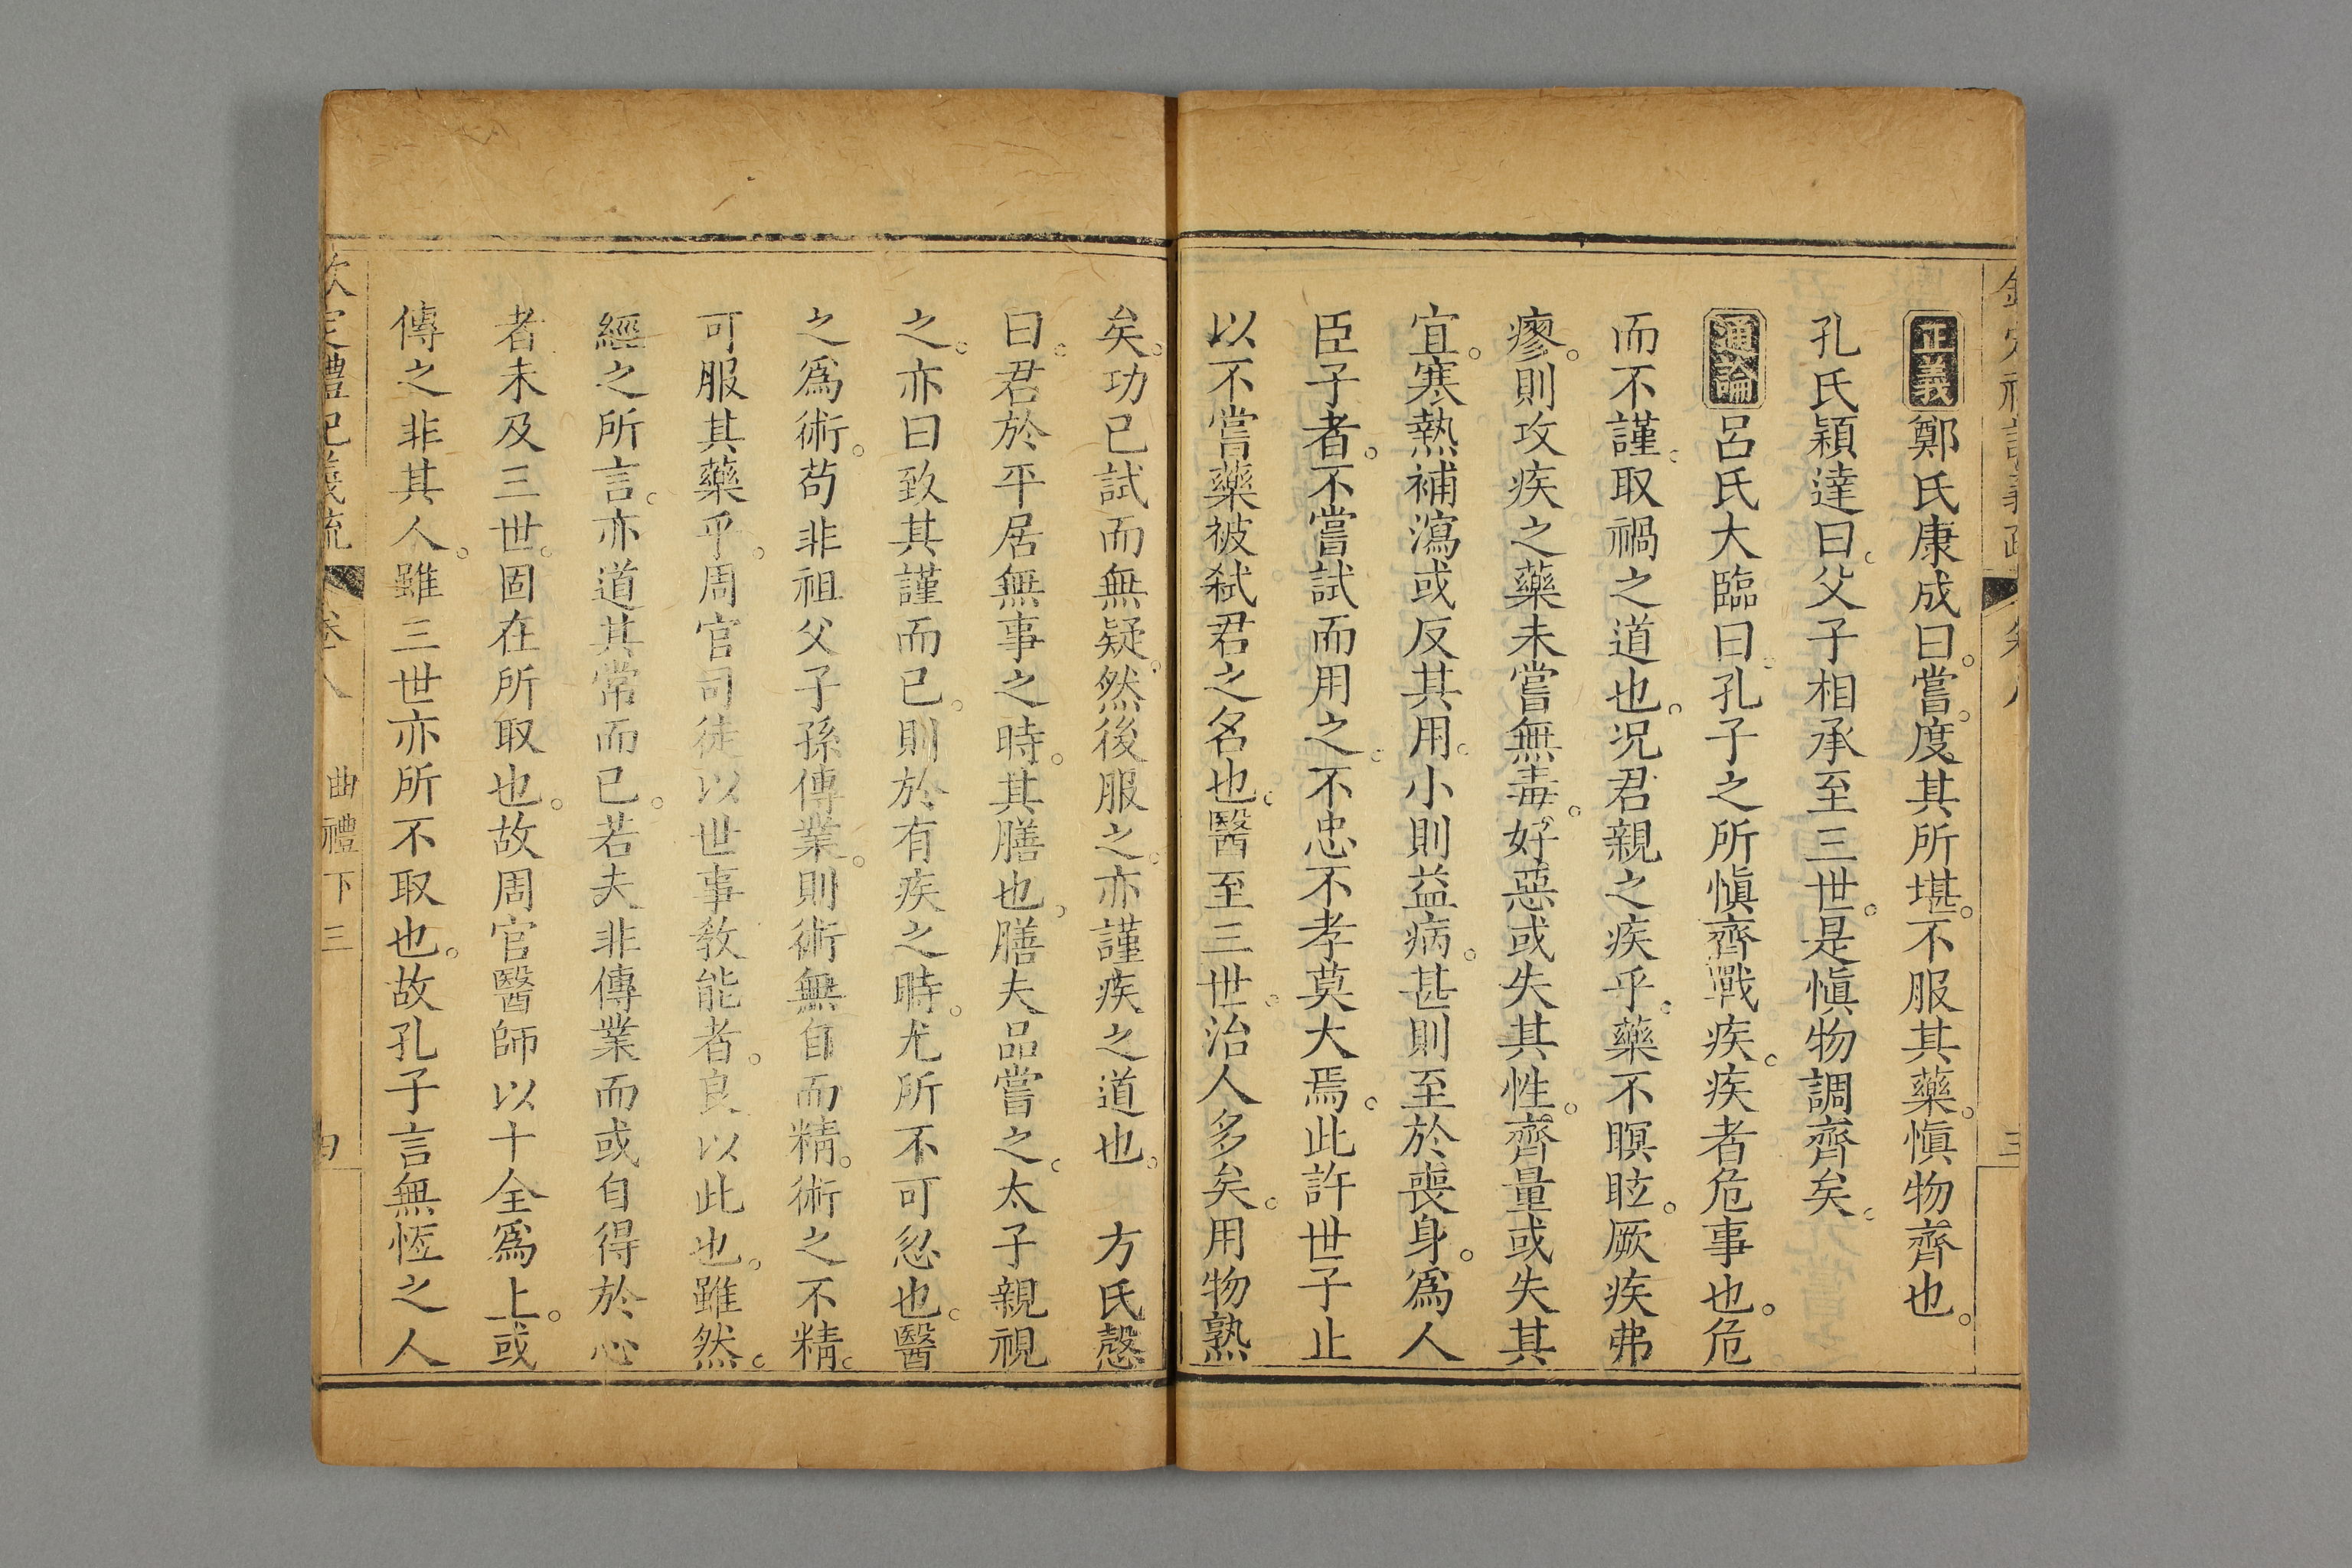 正義鄭氏康成曰。嘗。度其所堪。不服其藥。慎物齊也。
孔氏穎達曰。父子相承至三世。是慎物調齊矣。
通論呂氏大臨曰。孔子之所慎齊戰疾。疾者危事也。危
而不謹。取禍之道也。況君親之疾乎。藥不瞑眩。厥疾弗
瘳。則攻疾之藥未嘗無毒。好惡或失其性。齊量或失其
宜。寒熱補瀉或反其用。小則益病。甚則至於喪身。為人
臣子者。不嘗試而用之。不忠不孝莫大焉。此許世子止
以不嘗藥被弒君之名也。醫至三世。治人多矣。用物熟
矣。功已試而無疑。然後服之。亦謹疾之道也。 方氏慤
曰。君於平居無事之時。其膳也。膳夫品嘗之。太子親視
之。亦曰致其謹而已。則於有疾之時。尤所不可忽也。醫
之為術。苟非祖父子孫傳業。則術無自而精。術之不精。
可服其藥乎。周官司徒以世事教能者。良以此也。雖然。
經之所言。亦道其常而已。若夫非傳業而或自得於心
者未及三世。固在所取也。故周官醫師以十全為上。或
傳之非其人。雖三世亦所不取也。故孔子言無恆之人
欽定禮記義疏 卷八 曲禮下三